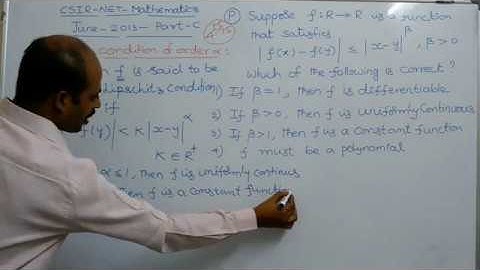 CSIR-NET-Mathematics
June-2013-Part-C
condition of order α:
f is said to be
Lipschitz Condition
if
f(y)| < K |x-y|^α
K ∈ R⁺
α ≤ 1, then f is uniformly continus
then f is a Constant functio
(P) Suppose f: R→R is a function
that satisfies
|f(x) - f(y)| ≤ |x-y|^β, β>0
Which of the following is Correct?
1) If β=1, Then f is differentiable
2) If β>0, Then f is Uniformly Continuous
3) If β>1, Then f is a Constant function
4) f must be a polynomial